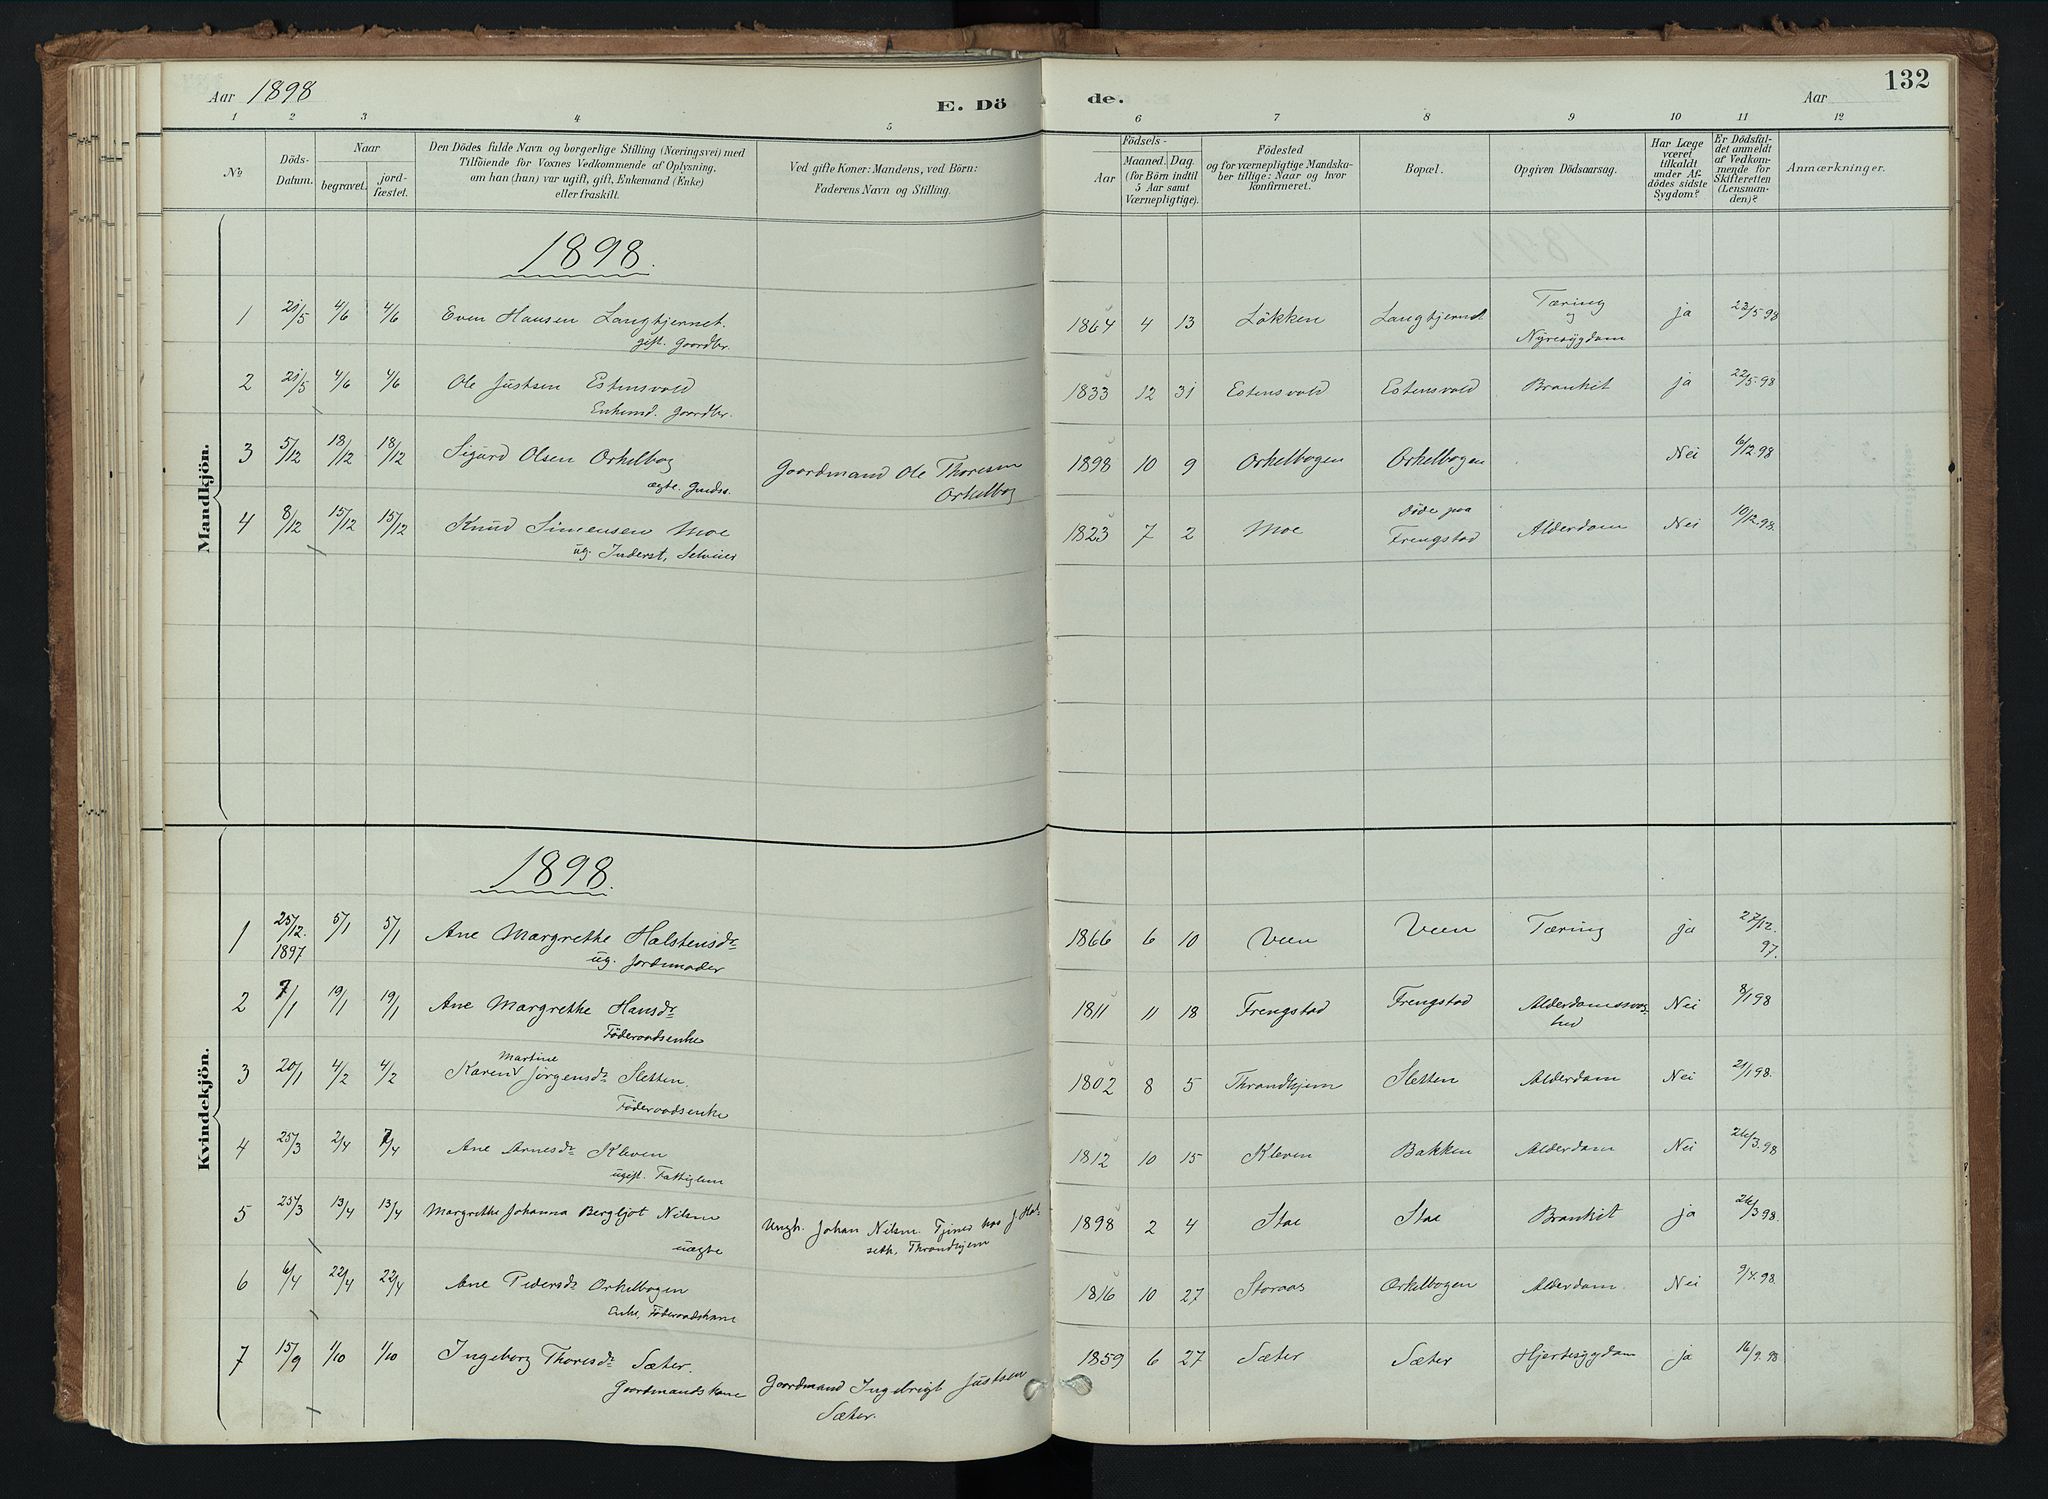 Aar 1898
E. Dö
de.
Aar
132
1 2 3 4 5 6 7 8 9 10 11 12
No
Döds-
Datum.
Naar
begravet.
jord-
fæstet.
Den Dödes fulde Navn og borgerlige Stilling (Næringsvei) med
Tilföiende for Voxnes Vedkommende af Oplysning,
om han (hun) var ugift, gift, Enkemand (Enke)
eller fraskilt.
Ved gifte Koner: Mandens, ved Börn:
Faderens Navn og Stilling.
Födsels-
Aar
Maaned. Dag.
(for Börn indtil
5 Aar samt
Værnepligtige).
Födested
og for værnepligtige Mandska-
ber tillige: Naar og hvor
konfirmeret.
Bopæl.
Opgiven Dödsaarsag.
Har Læge
været
tilkaldt
under Af-
dödes sidste
Sygdom?
Er Dödsfal-
det anmeldt
af Vedkom-
mende for
Skifteretten
(Lensman-
den)?
Anmærkninger.
Mandkjön.
1898.
1 21/5 4/6 4/6 Even Hansen Langkjernet. 1864 4 13 Lökken Langkjernet Tæring ja 22/5 98
gift. Gaardbr. og
Nyresygdom
2 21/5 4/6 4/6 Ole Justsen Estensvold 1833 12 31 Estensvold Estensvold Brankit ja 22/5. 98
Enkemd. Gaardbr.
3 5/12 18/12 18/12 Sigurd Olsen Orkelbog Gaardmand Ole Thoresen 1898 10 9 Orkelbogen Orkelbogen Nei 6/12 98
ægte. Orkelbog
4 8/12 15/12 15/12 Knud Simensen Moe 1823 7 2 Moe Döde paa Alderdom Nei 10/12. 98.
ug. Inderst, Selveier Frengstad
Kvindekjön.
1898.
1 25/12. 5/1 5/1 Ane Margrethe Halstensdr 1866 6 10 Veen Veen Tæring ja 27/12.
1897 ug. Jordmoder 97.
2 7/1 19/1 19/1 Ane Margrethe Hansdr 1811 11 18 Frengstad Frengstad Alderdomssvag- Nei 8/1 98
Föderaadsenke hed
Martine
3 20/1 4/2 4/2 Karen Jørgensdr Sletten. 1802 8 5 Throndhjem Sletten Alderdom Nei 21/1 98.
Föderaadsenke
4 25/3 2/4 7/4 Ane Arnesdr Kleven 1812 10 15 Kleven Bakken Alderdom Nei 26/3. 98
ugift. Fattiglem
5 25/3 13/4 13/4 Margrethe Johanna Bergljot Nilsen Ungk. Johan Nilsen Tjener hos J. Hal- 1898 2 4 Stae Stae Brankit ja 26/3 98.
uægte seth, Throndhjem
6 6/4 22/4 22/4 Ane Pedersdr Orkelbogen 1816 10 27 Storaas Orkelbogen Alderdom. Nei 9/4. 98.
Enke, Föderaadskone
7 15/9 1/10 1/10 Ingeborg Thoresdr Sæter. Gaardmand Ingebrigt Justsen 1859 6 27 Sæter Sæter Hjertesygdom ja 16/9. 98
Gaardmandskone Sæter.